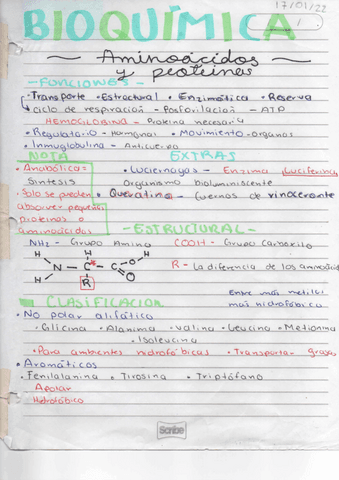 17/01/22
BIOQUÍMICA
1
Aminoácidos
y proteínas
-FUNCIONES-
•Transporte •Estructural •Enzimática •Reserva
ciclo de respiración - Fosforilación - ATP
HEMOGLOBINA - Proteína necesaria
•Regulatorio - Hormonas •Movimiento - organos
•Inmuglobulina - Anticuerpo
NOTA EXTRAS
•Anabólica= •Luciernagas - Enzima (Luciferina)
Síntesis Organismo bioluminiscente
•Solo se pueden •Queratina - Cuernos de rinoceronte
absorver pequeñas
proteínas o
aminoácidos
-ESTRUCTURAL-
NH2 - Grupo Amina COOH - Grupo Carboxilo
H H O H
N C* C R - La diferencia de los aminoácid
H R O
Entre más metilos
más hidrofóbico
CLASIFICACION
•No polar alifático
•Glicina •Alanima •Valina •Leucina •Metionina
•Isoleucina
•Para ambientes hidrofóbicas •Transporta- grasa
•Aromáticos
•Fenilalanina •Tirosina •Triptófano
Apolar
Hidrofóbico
Scribe